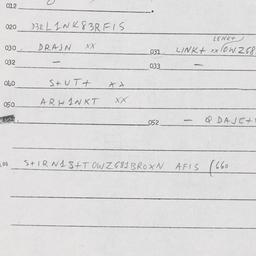 012
020 BRL1NK83RFIS
LENE+
030 DRAIN XX 031 LINK+ XX10WZ68
032 — 033 —
060 S+UT+ XX
050 ARH1NKT XX
052 — @DAJE+
S+IRN13+TOWZ681BROXN AFIS (660